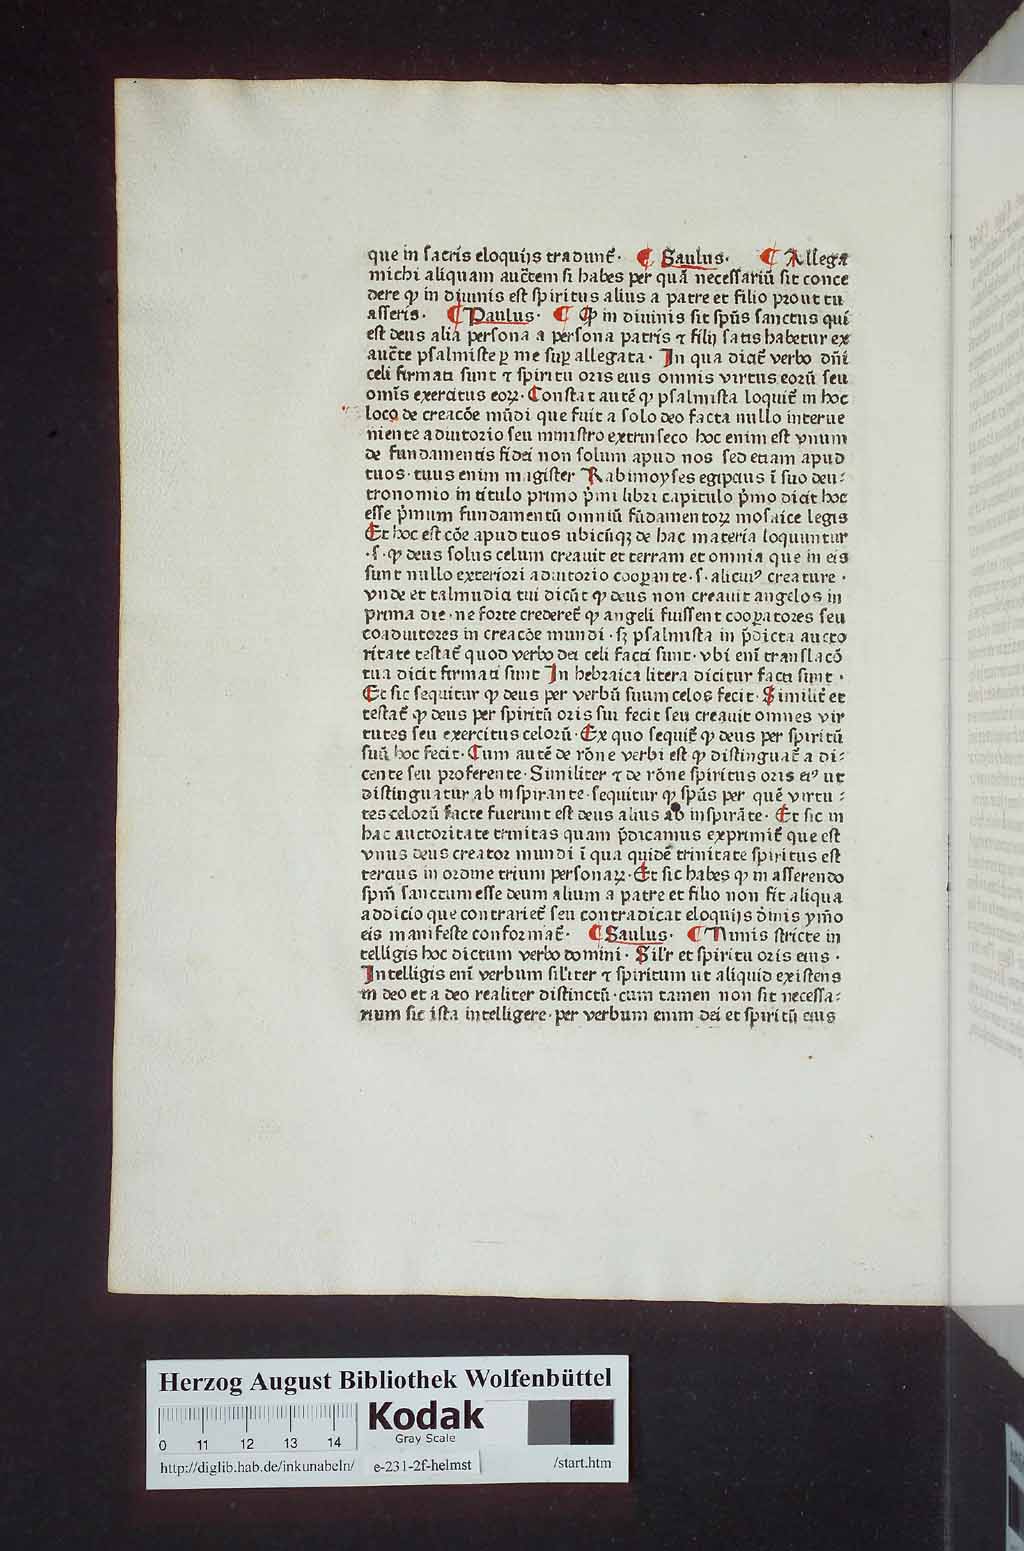 que in sacris eloquijs tradunt̃· ¶ Saulus· ¶ Allega
michi aliquam auc̃tem si habes per quã necessariũ sit conce
dere ꝙ in diuinis est spiritus alius a patre et filio prout tu
asseris· ¶ Paulus· ¶ Ꝙ in diuinis sit spũs sanctus qui
est deus alia persona a persona patris ⁊ filij satis habetur ex
auc̃te psalmiste ꝑ me suꝑ allegata· In qua dicit̃ verbo dñi
celi firmati sunt ⁊ spiritu oris eius omnis virtus eorũ seu
omĩs exercitus eoꝝ· Constat autẽ ꝙ psalmista loquit̃ in hoc
loco de creacõe mũdi que fuit a solo deo facta nullo interue
niente adiutorio seu ministro extrinseco hoc enim est vnum
de fundamentis fidei non solum apud nos sed etiam apud
tuos· tuus enim magister Rabimoyses egiptius ĩ suo deu⸗
tronomio in titulo primo p̃mi libri capitulo p̃mo dicit hoc
esse p̃mum fundamentũ omniũ fũdamentoꝝ mosaice legis
Et hoc est cõe apud tuos ubicũqꝫ de hac materia loquuntur
·s· ꝙ deus solus celum creauit et terram et omnia que in eis
sunt nullo exteriori adiutorio cooꝑante· s· alicuiꝰ creature·
vnde et talmudici tui dicũt ꝙ deus non creauit angelos in
prima die· ne forte crederet̃ ꝙ angeli fuissent cooꝑatores seu
coadiutores in creacõe mundi· sꝫ psalmista in p̃dicta aucto
ritate testat̃ quod verbo dei celi facti sunt· vbi enĩ translacõ
tua dicit firmati sunt In hebraica litera dicitur facti sunt·
Et sic sequitur ꝙ deus per verbũ suum celos fecit· Similit̃ et
testat̃ ꝙ deus per spiritũ oris sui fecit seu creauit omnes vir
tutes seu exercitus celorũ· Ex quo sequit̃ ꝙ deus per spiritũ
suũ hoc fecit· Cum autẽ de rõne verbi est ꝙ distinguat̃ a di⸗
cente seu proferente· Similiter ⁊ de rõne spiritus oris eiꝰ ut
distinguatur ab inspirante· sequitur ꝙ spũs per quẽ virtu⸗
tes celorũ facte fuerunt est deus alius ab inspirãte· Et sic in
hac auctoritate trinitas quam p̃dicamus exprimit̃ que est
vnus deus creator mundi ĩ qua quidẽ trinitate spiritus est
tercius in ordine trium personaꝝ· Et sic habes ꝙ in asserendo
spm̃ sanctum esse deum alium a patre et filio non fit aliqua
addicio que contrariet̃ seu contradicat eloquijs diuinis ymo
eis manifeste conformat̃· ¶ Saulus· ¶ Nimis stricte in
telligis hoc dictum verbo domini· Sil'r et spiritu oris eius·
Intelligis enĩ verbum sil'iter ⁊ spiritum ut aliquid existens
in deo et a deo realiter distinctũ· cum tamen non sit necessa⸗
rium sic ista intelligere· per verbum enim dei et spiritũ eius
Herzog August Bibliothek Wolfenbüttel
Kodak
Gray Scale
0 11 12 13 14
http://diglib.hab.de/inkunabeln/ e-231-2f-helmst /start.htm